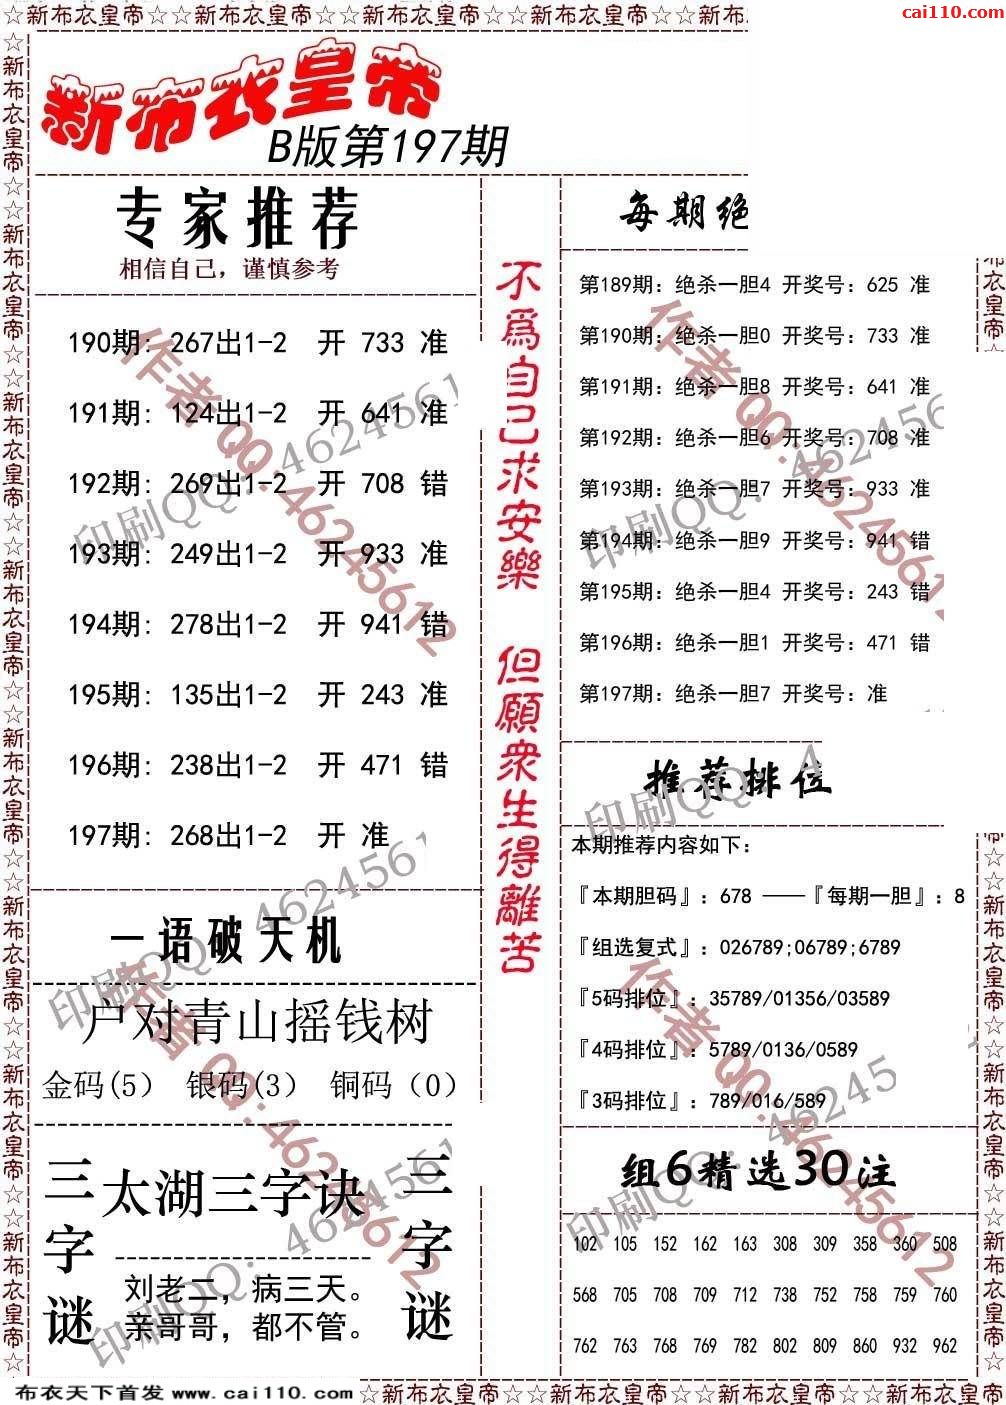 ☆新布衣皇帝☆新布衣皇帝☆新布衣皇帝☆新布衣皇帝☆新布
cai110.com
新布衣皇帝
B版第197期
专家推荐
相信自己，谨慎参考
190期: 267出1-2 开 733 准
191期: 124出1-2 开 641 准
192期: 269出1-2 开 708 错
193期: 249出1-2 开 933 准
194期: 278出1-2 开 941 错
195期: 135出1-2 开 243 准
196期: 238出1-2 开 471 错
197期: 268出1-2 开 准
一语破天机
户对青山摇钱树
金码(5) 银码(3) 铜码（0）
三字谜
太湖三字诀
刘老二，病三天。
亲哥哥，都不管。
三字谜
不為自己求安樂 但願衆生得離苦
每期绝
第189期: 绝杀一胆4 开奖号: 625 准
第190期: 绝杀一胆0 开奖号: 733 准
第191期: 绝杀一胆8 开奖号: 641 准
第192期: 绝杀一胆6 开奖号: 708 准
第193期: 绝杀一胆7 开奖号: 933 准
第194期: 绝杀一胆9 开奖号: 941 错
第195期: 绝杀一胆4 开奖号: 243 错
第196期: 绝杀一胆1 开奖号: 471 错
第197期: 绝杀一胆7 开奖号: 准
推荐排位
本期推荐内容如下:
『本期胆码』: 678 ——『每期一胆』: 8
『组选复式』: 026789;06789;6789
『5码排位』: 35789/01356/03589
『4码排位』: 5789/0136/0589
『3码排位』: 789/016/589
组6精选30注
102 105 152 162 163 308 309 358 360 508
568 705 708 709 712 738 752 758 759 760
762 763 768 769 782 802 809 860 932 962
作者QQ:46245612
印刷QQ: 4624561
布衣天下首发 www.cai110.com
☆新布衣皇帝☆新布衣皇帝☆新布衣皇帝☆新布衣皇帝☆